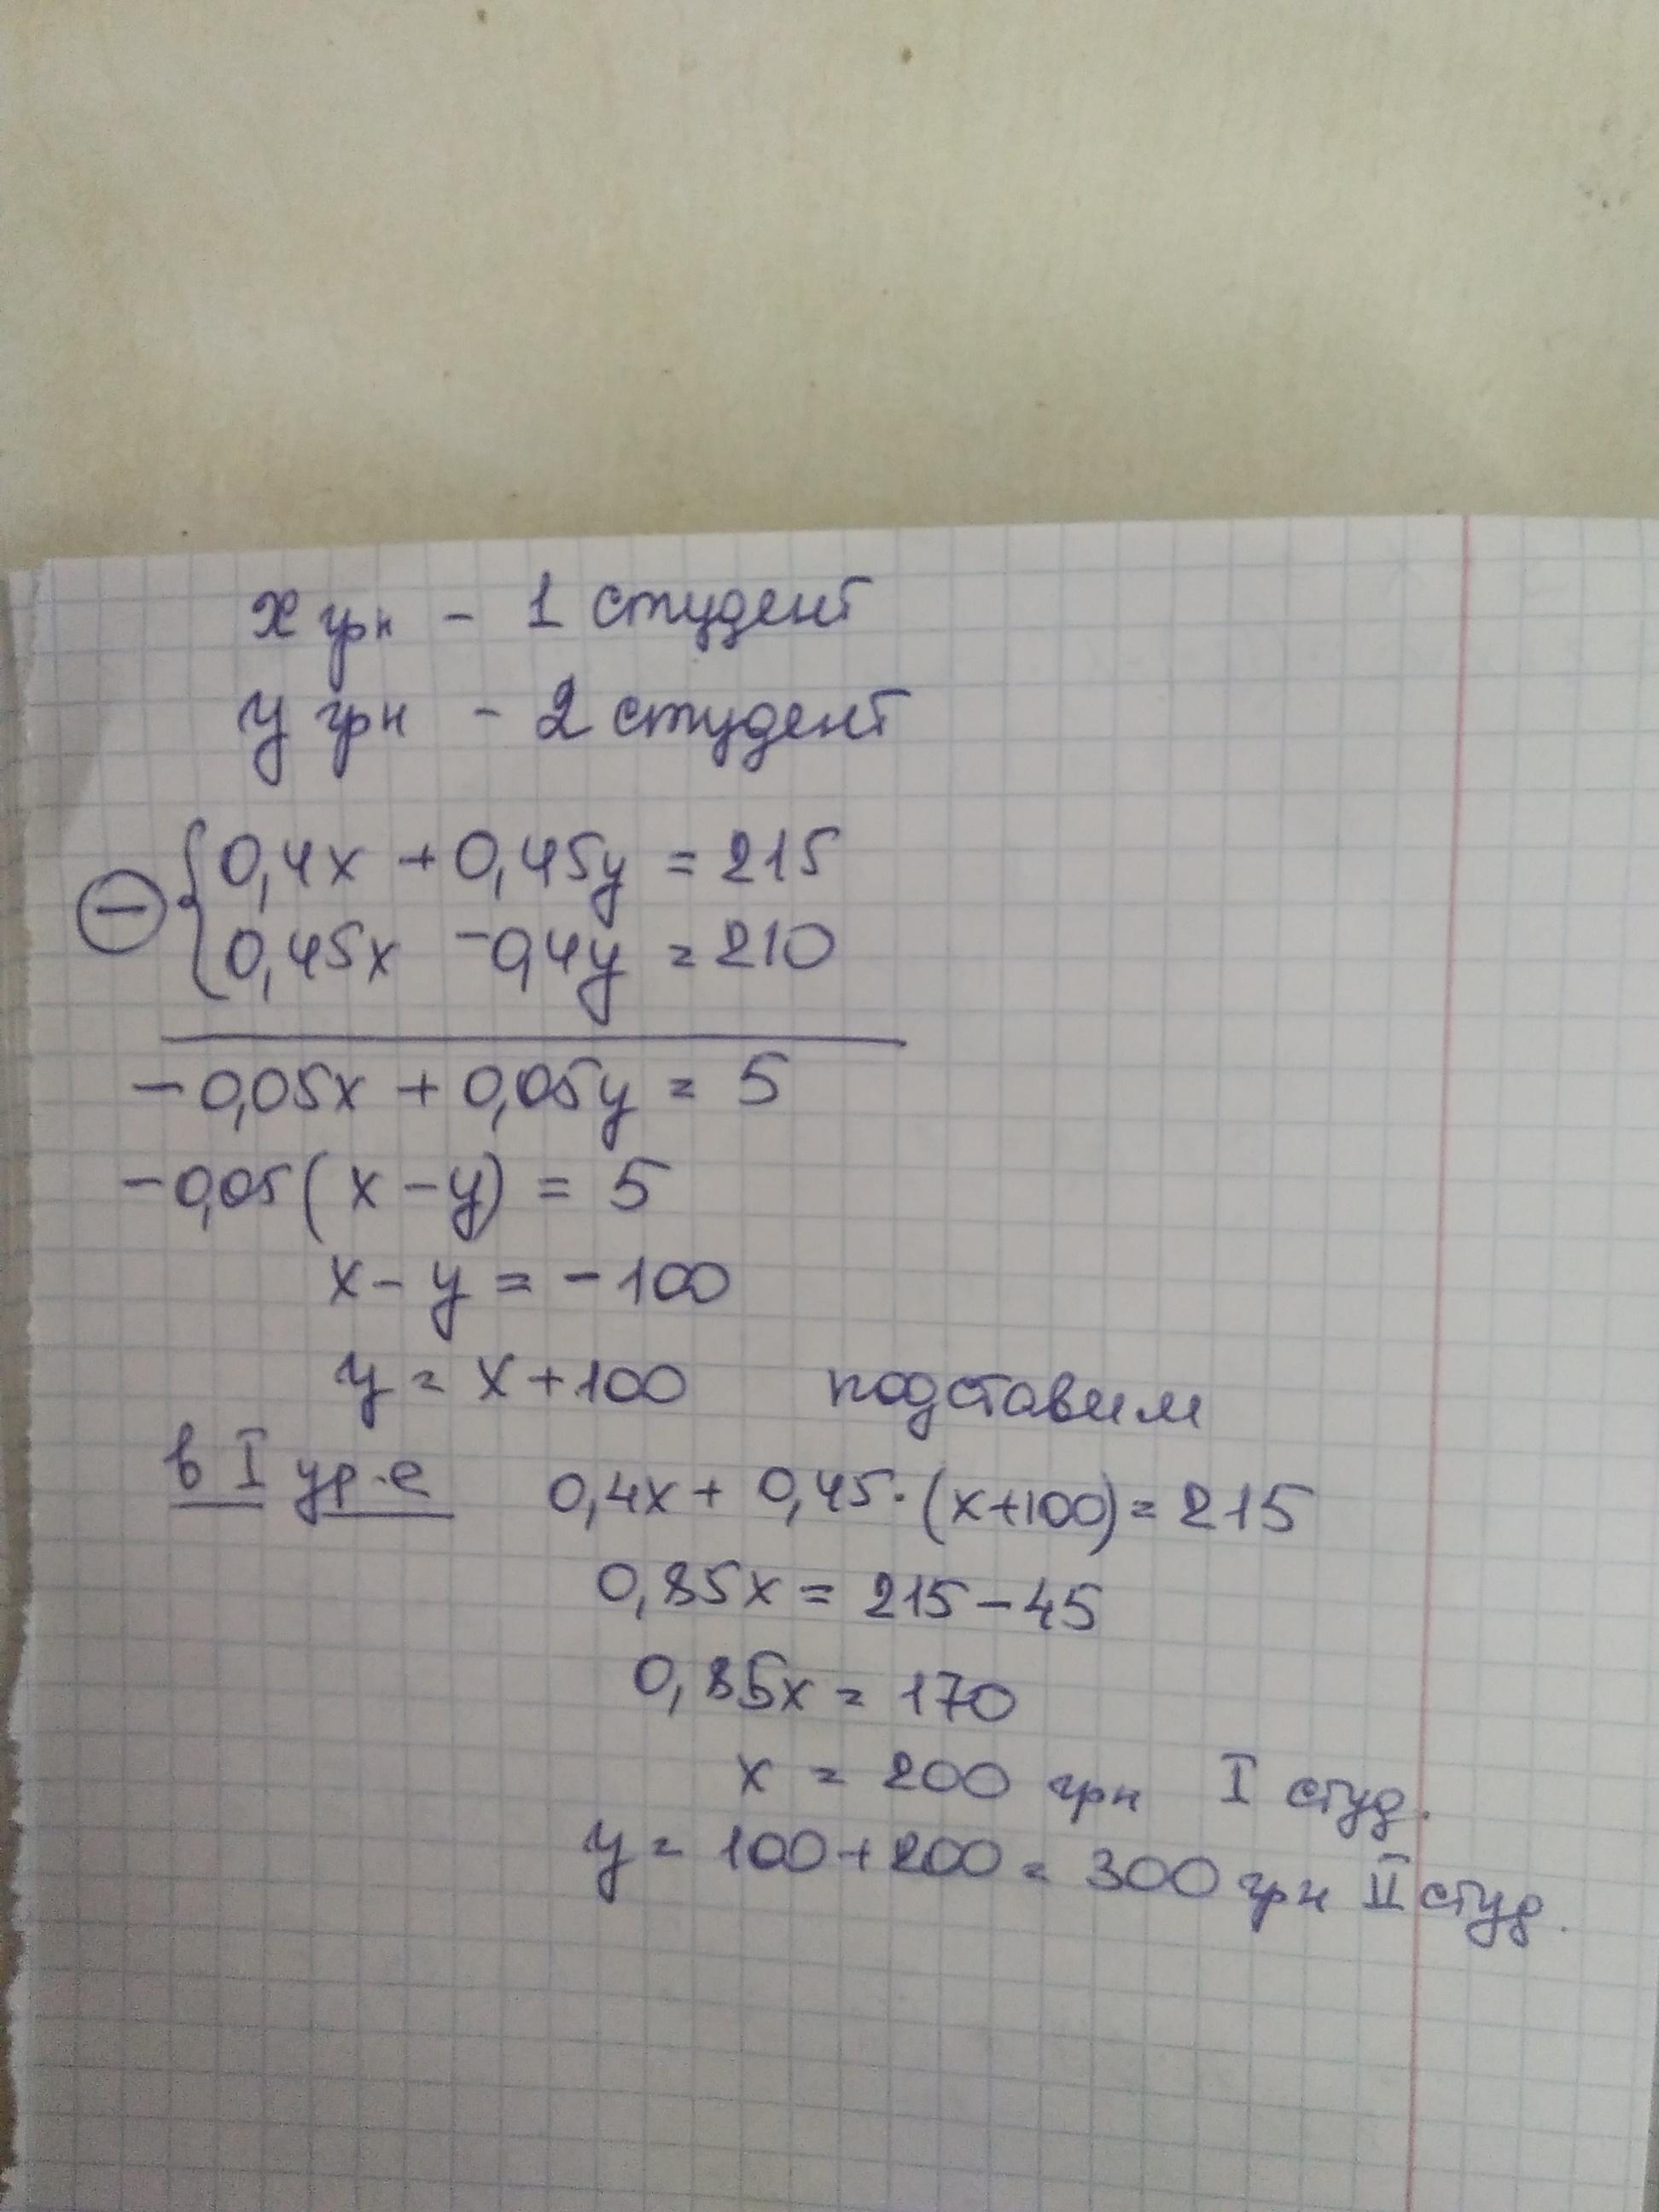 x грн - 1 студент
y грн - 2 студент
0,4x + 0,45y = 215
0,45x - 0,4y = 210
-0,05x + 0,05y = 5
-0,05(x-y) = 5
x - y = -100
y = x + 100 подставим
в I ур-е 0,4x + 0,45·(x+100) = 215
0,85x = 215 - 45
0,85x = 170
x = 200 грн I студ.
y = 100 + 200 = 300 грн II студ.